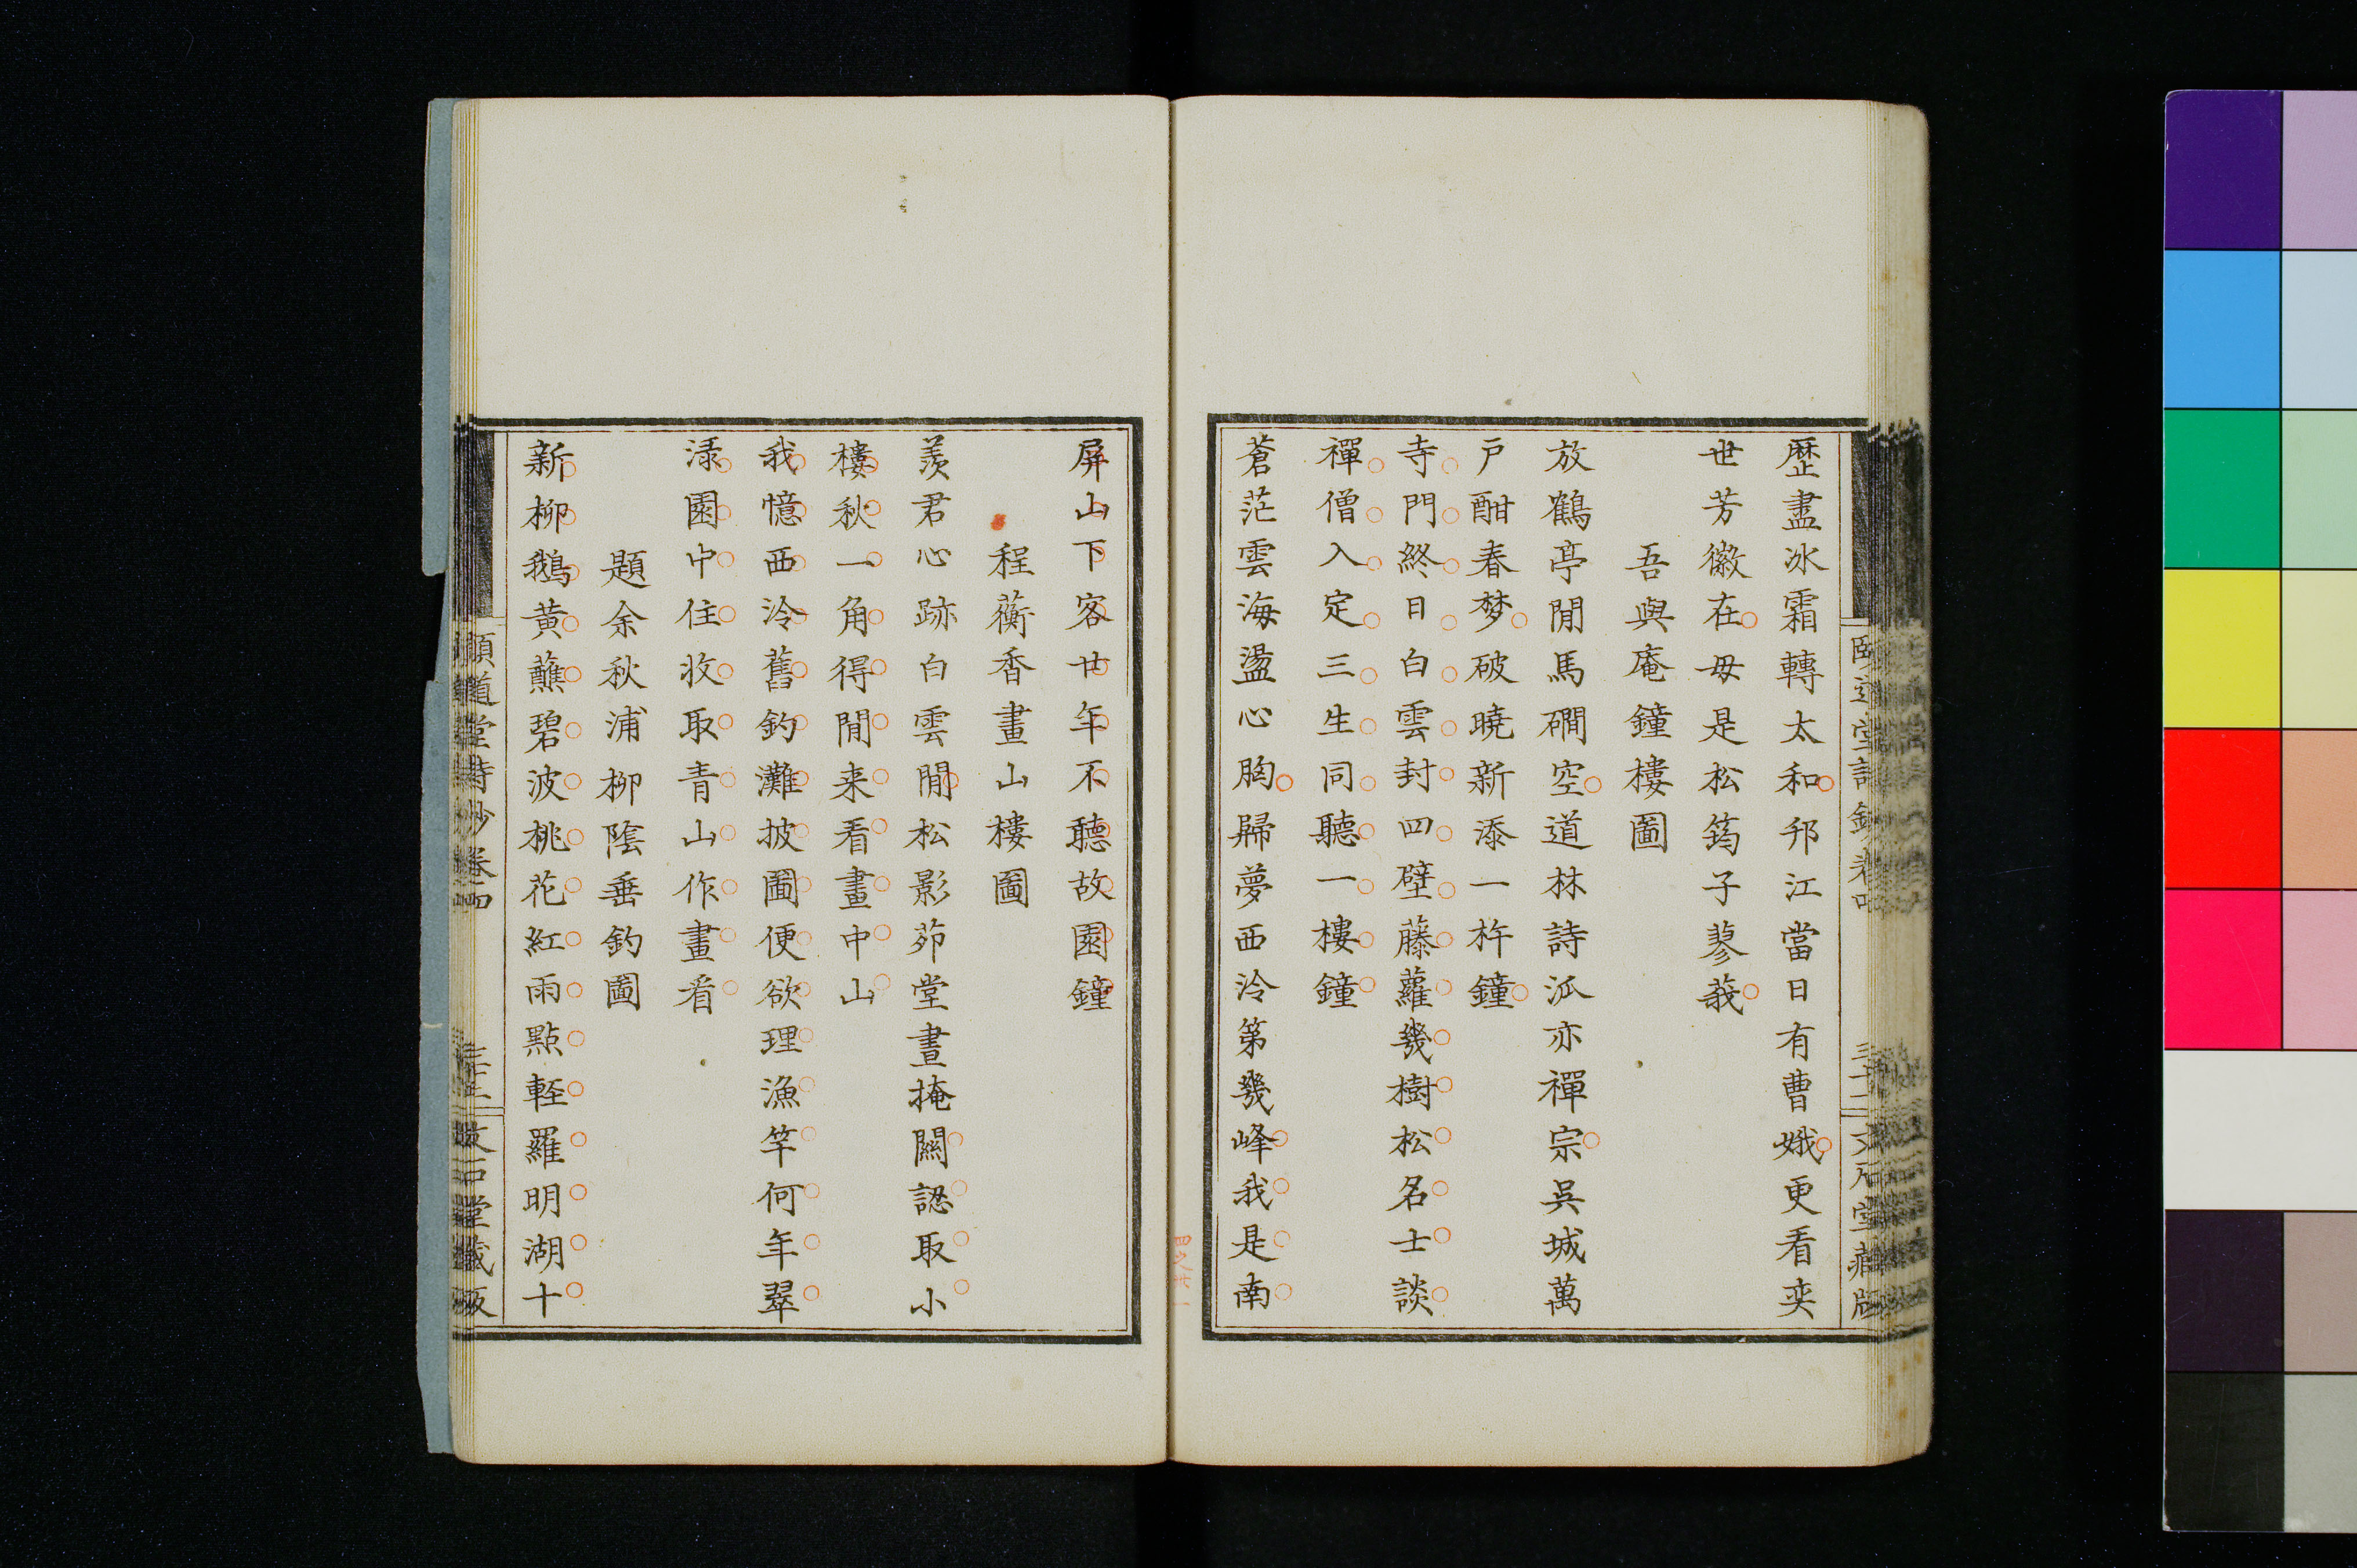 歴盡冰霜轉太和邗江當日有曹娥更看奕
世芳徽在毋是松筠子蓼莪
吾與庵鐘樓圖
放鶴亭閒馬磵空道林詩派亦禪宗吳城萬
戸酣春梦破曉新添一杵鐘
寺門終日白雲封四壁藤蘿幾樹松名士談
禪僧入定三生同聽一樓鐘
蒼茫雲海盪心胸歸夢西泠第幾峰我是南
屏山下客廿年不聽故園鐘
程蘅香畫山樓圖
羨君心跡白雲閒松影茆堂晝掩關認取小
樓秋一角得閒来看畫中山
我憶西泠舊釣灘披圖便欲理漁竿何年翠
渌園中住收取青山作畫看
題余秋浦柳陰垂釣圖
新柳鵝黄蘸碧波桃花紅雨點輕羅明湖十
頤道堂詩鈔卷四
文石堂藏版